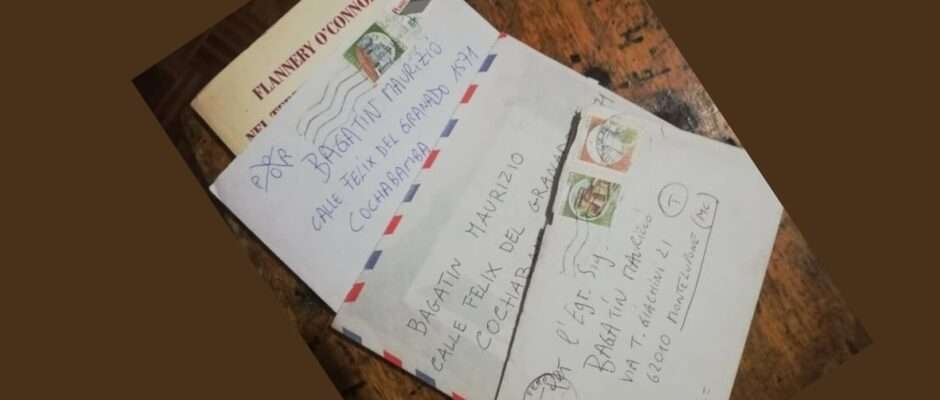 FLANNERY O'CONNO
NEL
POR
BAGATIN MAURIZIO
CALLE FELIX DEL GRANADO 1571
COCHABAMBA
BAGATIN MAURIZIO
CALLE FELIX DEL GRANAD
COCHABAM
71
Per l'Egr. Sig
BAGATIN MAURIZIO
VIA T. GIACHINI 21
62010 MONTELUPONE (MC)
T